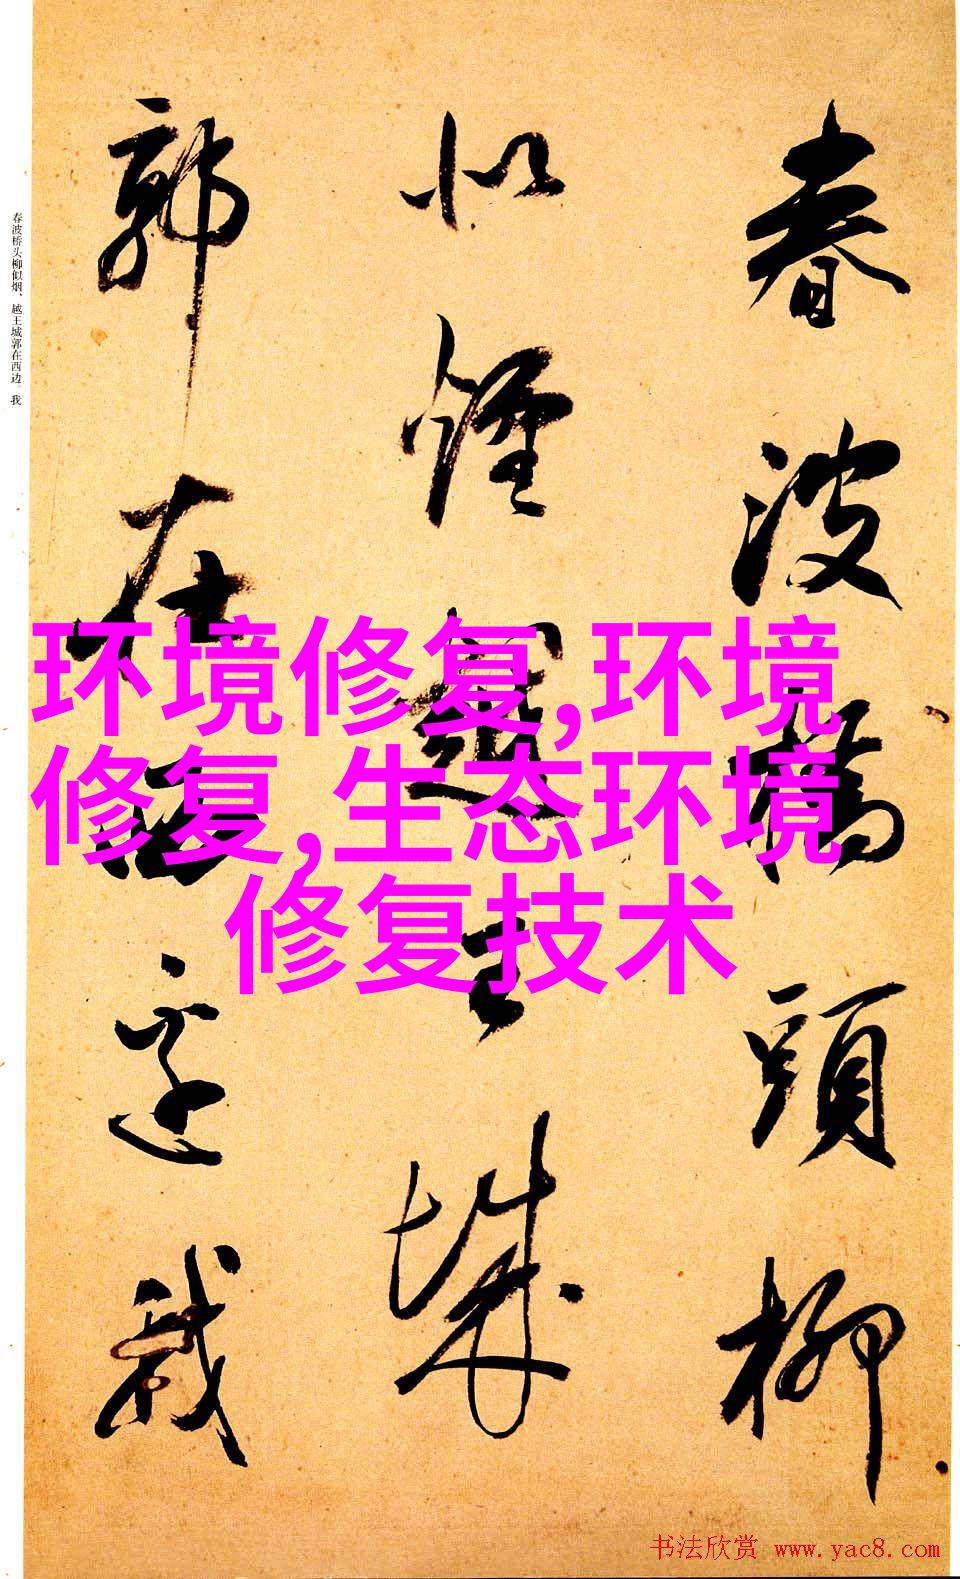 春波橋頭柳
似煙越王城
郭在西邊我
春波桥头柳似烟、越王城郭在西边。我
环境修复,环境
修复,生态环境
修复技术
书法欣赏 www.yac8.com